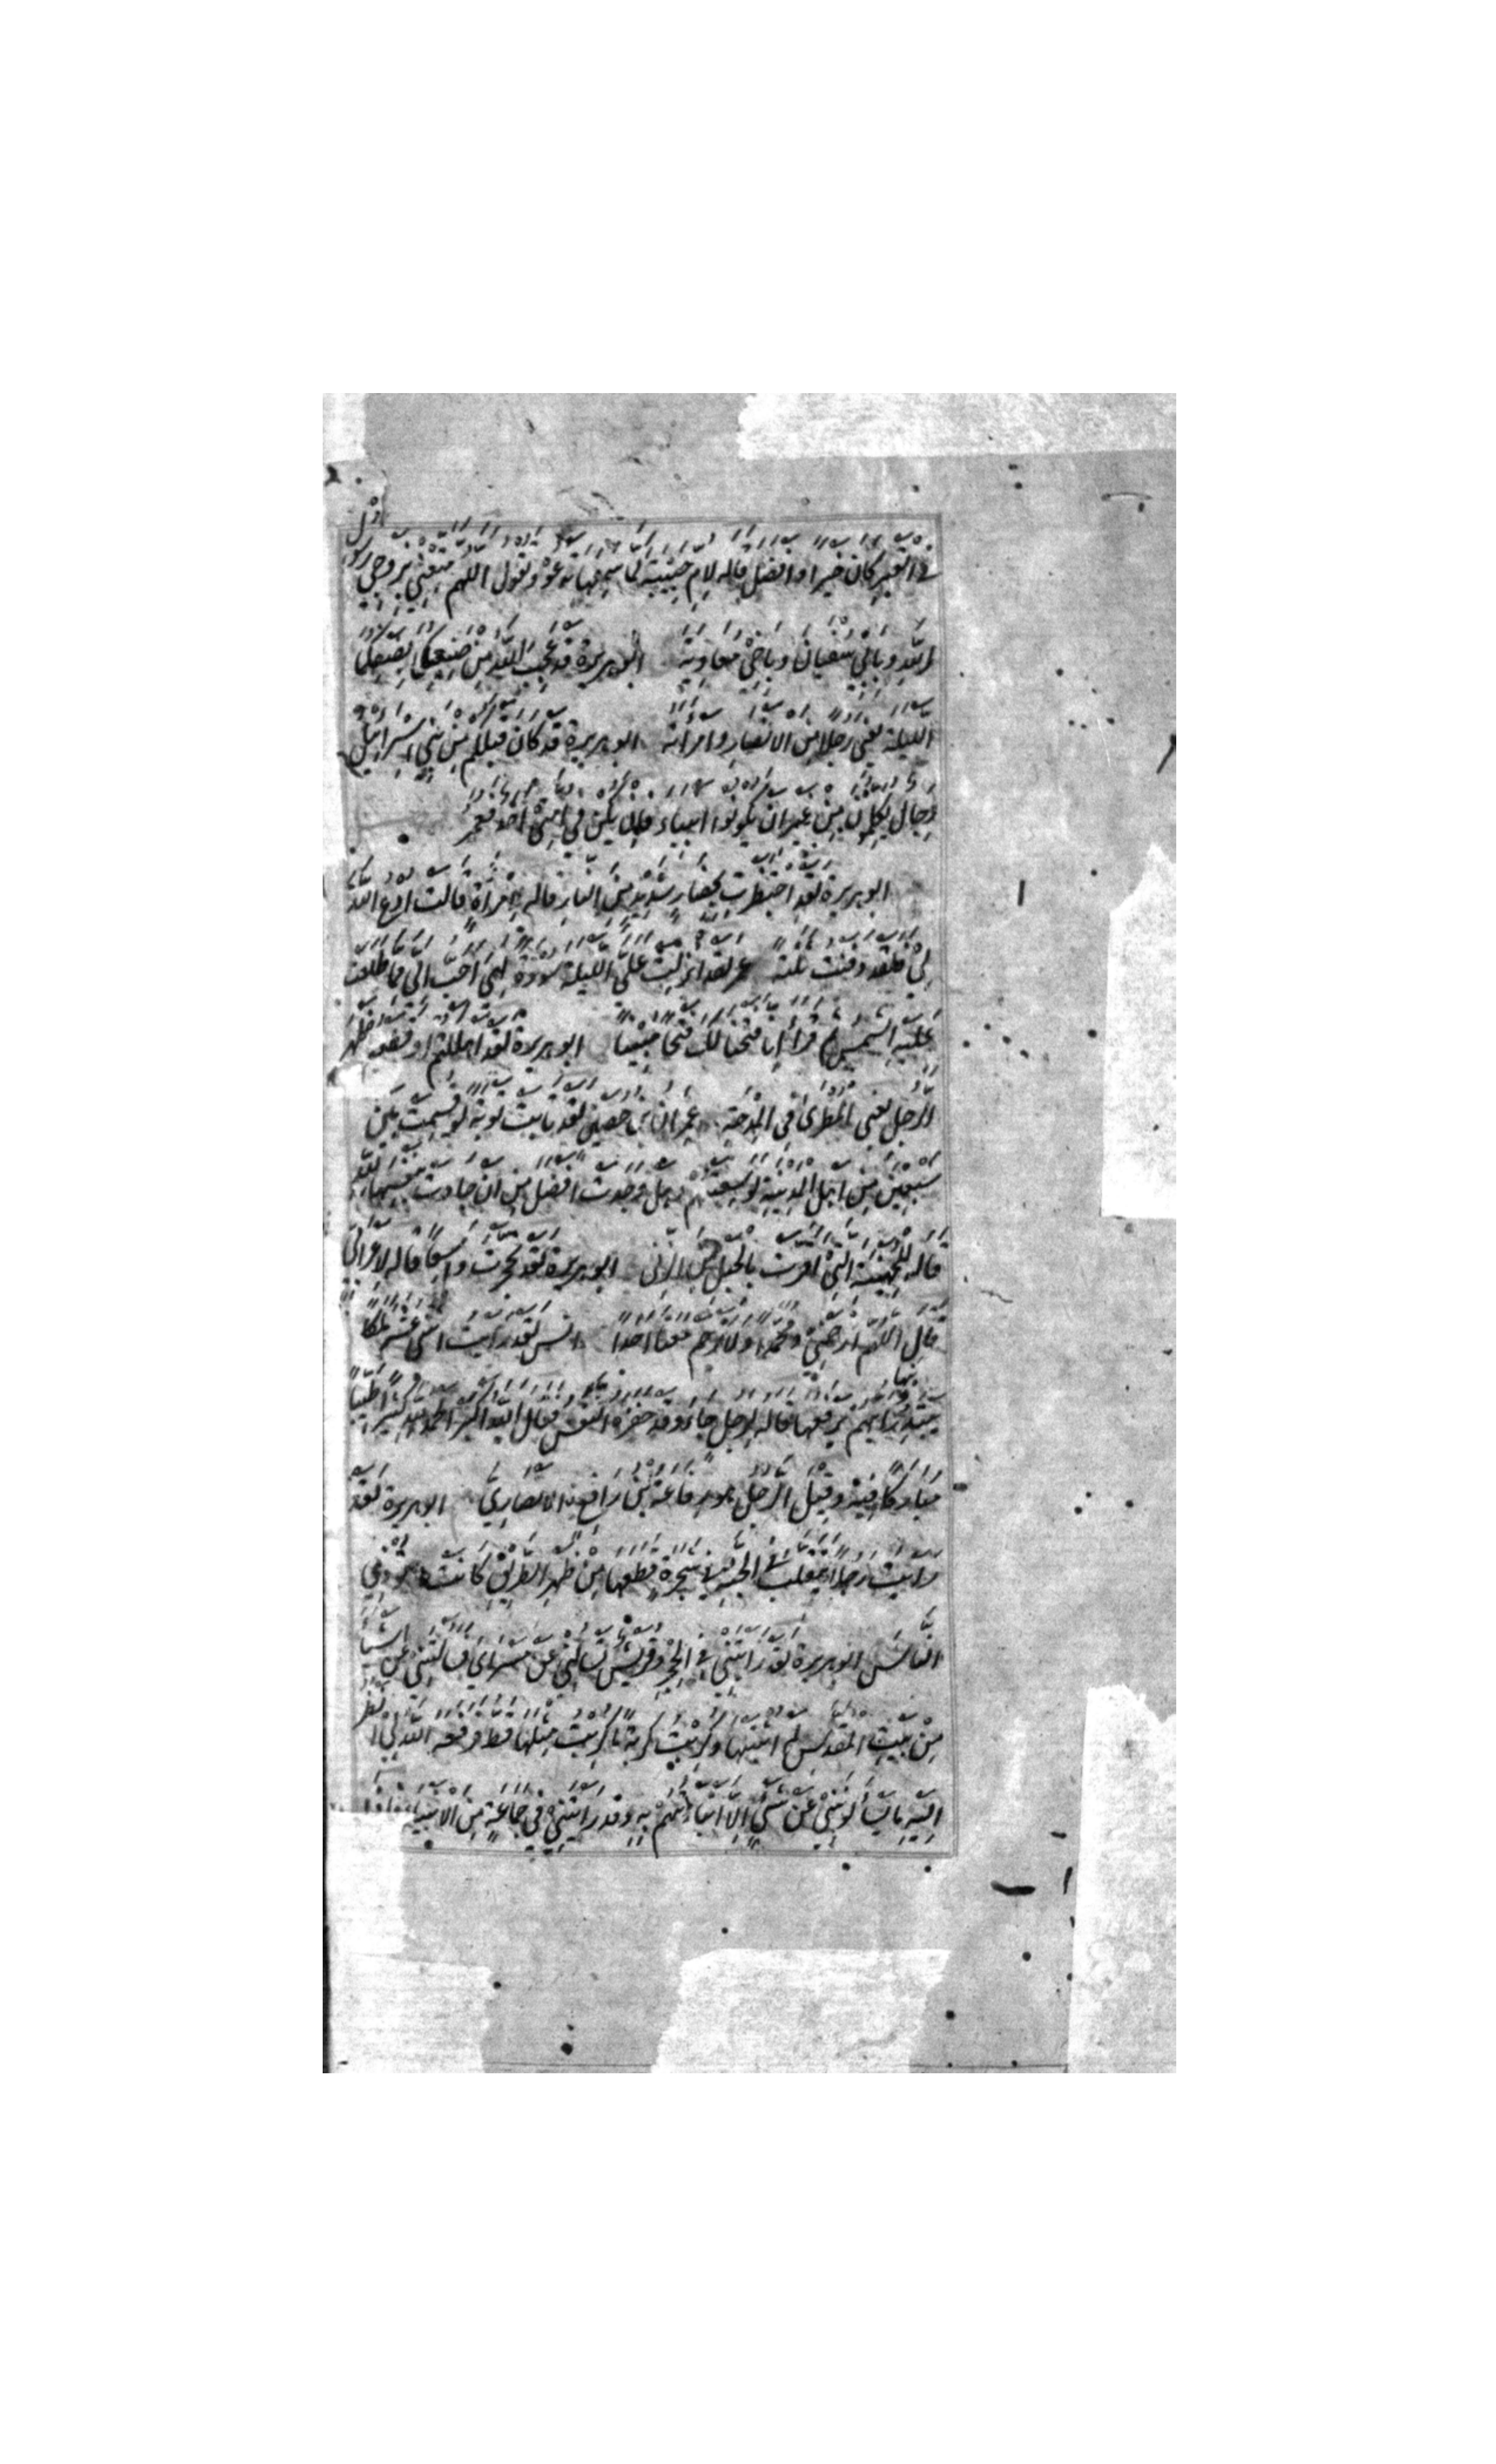 في القبر كان خيرا وافضل قاله لام حبيبة لما سمعها تدعو وتقول اللهم متعني بزوجي رسول
الله وبابي سفيان وباخي معاوية ابو هريرة قد عجب الله من صنيعكما بضيفكما
الليلة يعني رجلا من الانصار وامراته ابو هريرة قد كان قبلكم من بني اسرائيل
رجال يكلمون من غير ان يكونوا انبياء فان يكن في امتي احد فعمر
ابو هريرة لقد احتظرت بحظار شديد من النار قاله لامرأة قالت ادع الله
لي فلقد دفنت ثلثة عمر لقد انزلت علي الليلة سورة لهي احب الي مما طلعت
عليه الشمس ثم قرأ انا فتحنا لك فتحا مبينا ابو هريرة لقد اهلكتم او قطعتم ظهر
الرجل يعني المطري في المدحة عمران بن حصين لقد تابت توبة لو قسمت بين
سبعين من اهل المدينة لوسعتهم وهل وجدت افضل من ان جادت بنفسها لله
قاله للجهنية التي اقرت بالحبل من الزنى ابو هريرة لقد تحجرت واسعا قاله لاعرابي
قال اللهم ارحمني ومحمدا ولا ترحم معنا احدا انس لقد رايت اثني عشر ملكا
يبتدرونها ايهم يرفعها قاله لرجل جاء وقد حفزه النفس فقال الله اكبر الحمد لله كثيرا طيبا
مباركا فيه وقيل الرجل هو رفاعة بن رافع الانصاري ابو هريرة لقد
رايت رجلا يتقلب في الجنة في شجرة قطعها من ظهر الطريق كانت تؤذي
الناس ابو هريرة لقد رايتني في الحجر وقريش تسالني عن مسراي فسالتني عن اشياء
من بيت المقدس لم اثبتها وكربت كربة ما كربت مثلها قط فرفعه الله لي انظر
اليه ما يسألوني عن شيء الا انبأتهم به وقد رايتني في جماعة من الانبياء